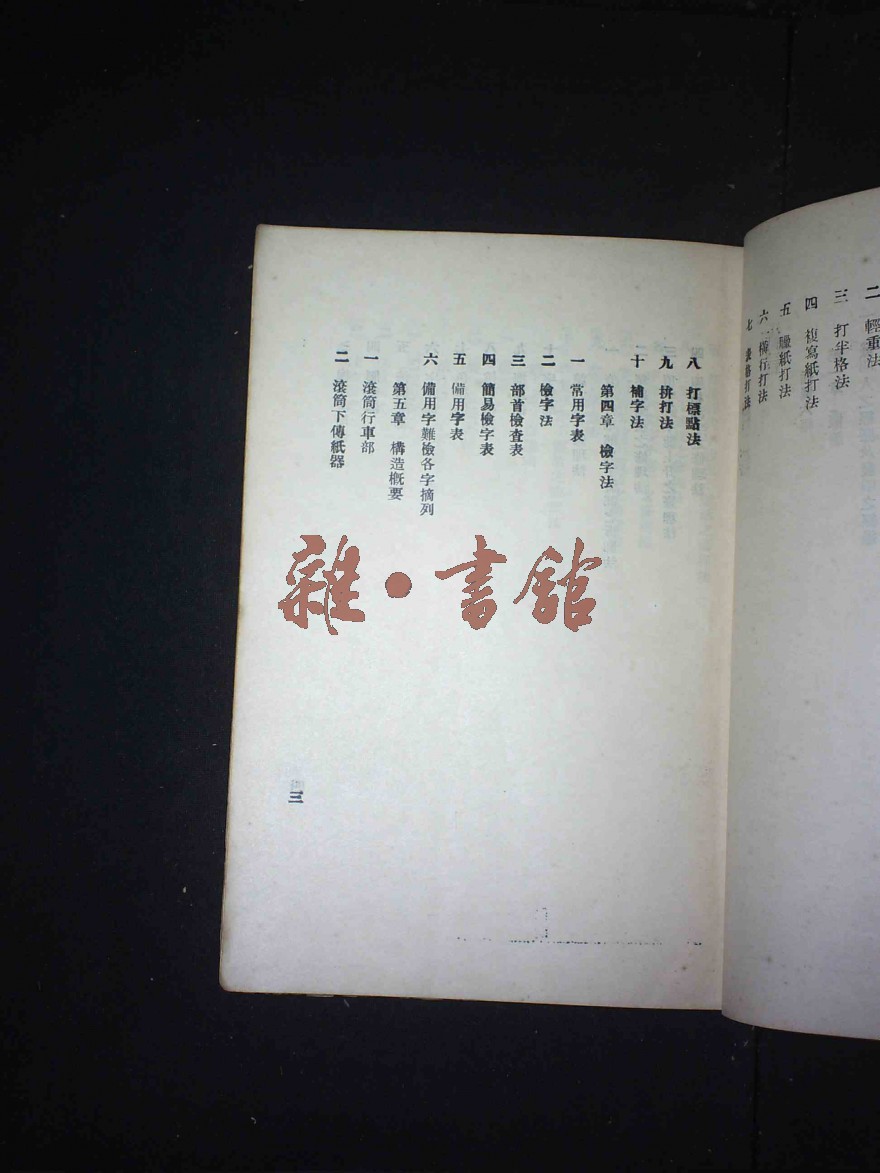 二 輕重法
三 打半格法
四 複寫紙打法
五 臘紙打法
六 橫行打法
七 表格打法
八 打標點法
九 拚打法
十 補字法
第四章 檢字法
一 常用字表
二 檢字法
三 部首檢查表
四 簡易檢字表
五 備用字表
六 備用字難檢各字摘列
第五章 構造概要
一 滾筒行車部
二 滾筒下傳紙器
三
雜·書館